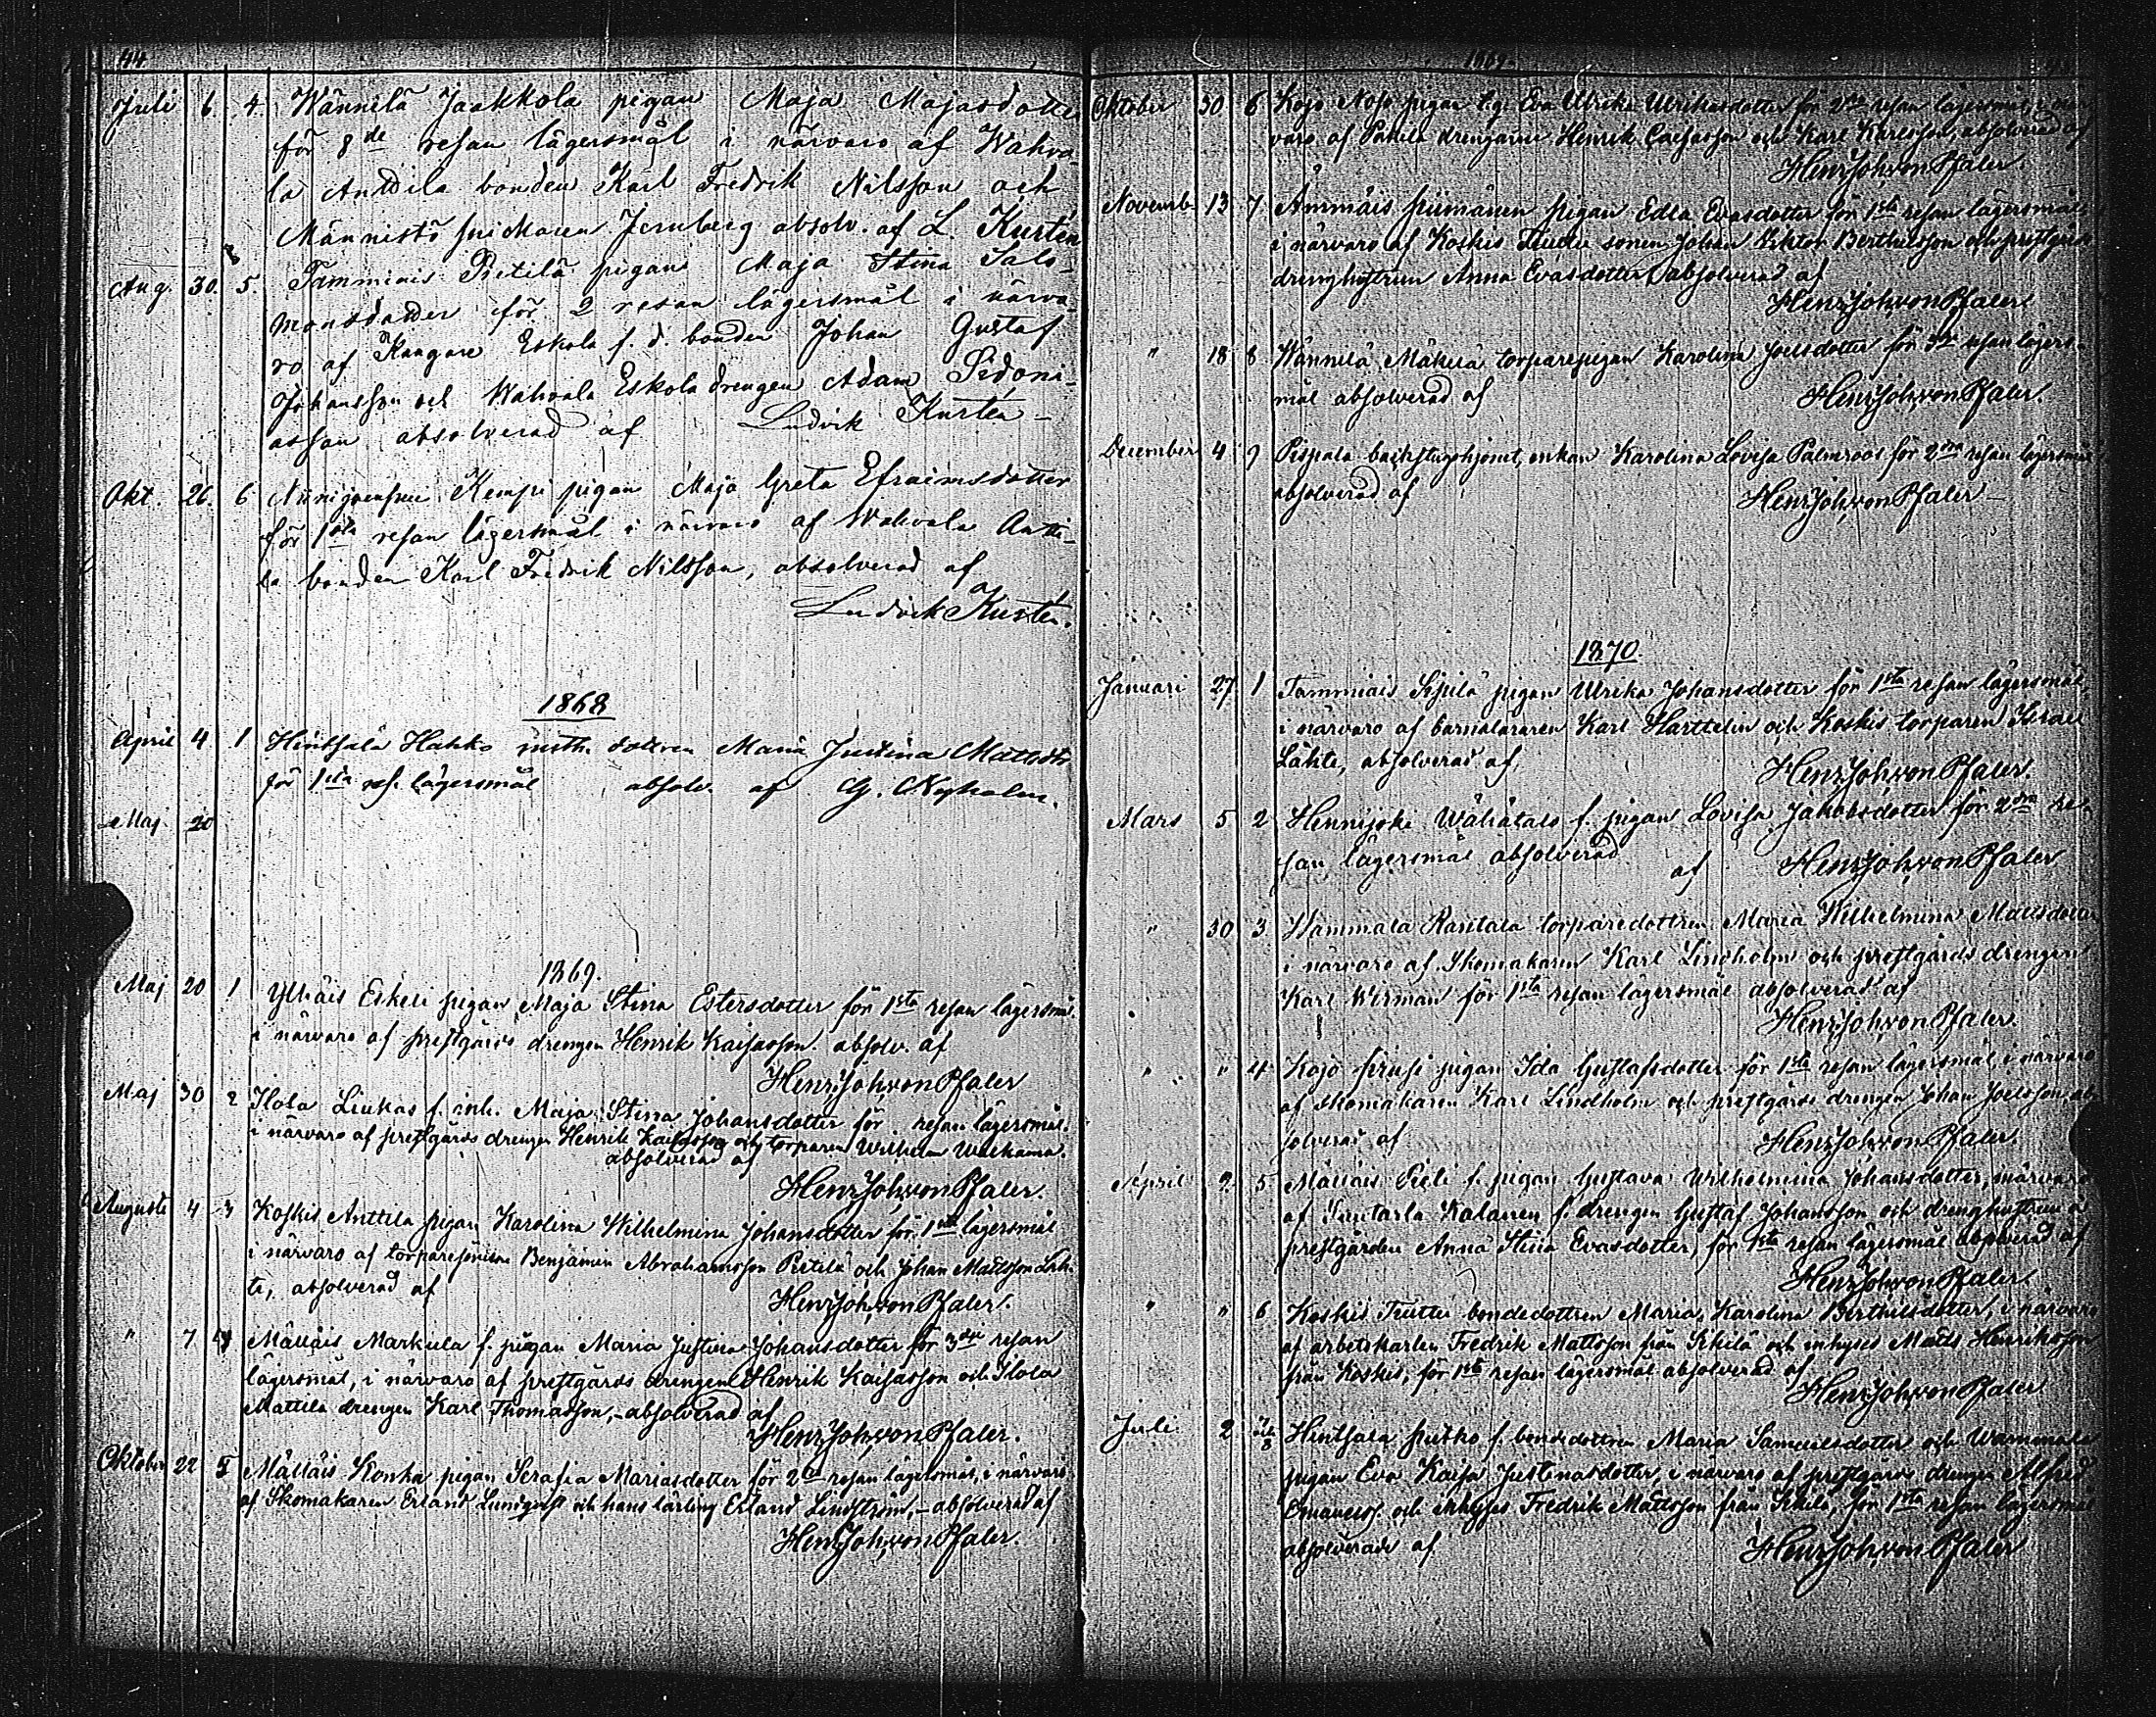 44
Juli 6. 4. Wännilä Jaakkola pigan Maja Majasdotter
för 8de resan lägersmål i närvaro af Wahva-
la Anttila bonden Karl Fredrik Nilsson och
Männistö Jernberg absolv. af L. Kurtén
Aug. 30. 5. Tamminais Pietilä pigan Maja Stina Salo-
monsdotter för 2 resan lägersmål i närva-
ro af Kangare Eskola f. d. bonden Johan Gustaf
Johansson och Wahvala Eskola drengen Adam Sidoni-
asson absolverad af Ludvik Kurtén
Okt. 26. 6 Kempi pigan Maja Greta Efraimsdotter
för 1sta resan lägersmål i närvaro af Wahvala Antti-
la bonden Karl Fredrik Nilsson, absolverad af
Ludvik Kurtén.
1868
April 4 1 Hintsala Hakko dottren Maria Justina Mattsdr
för 1sta res. lägersmål absolv. af G. Nyholm.
Maj. 20
1869.
Maj 20 1 Yllnäis Eskeli pigan Maja Stina Estersdotter för 1sta resan lägersmål
i närvaro af prestgårds drengen Henrik Kaisasson. absolv. af
Henr. Joh. von Pfaler
Maj 30 2 Ilola Liukas f. inh. Maja Stina Johansdotter för resan lägersmål.
i närvaro af prestgårds drengen Henrik Kaisasson och torparen Wilhelm Walkama.
absolverad af
Henr. Joh. von Pfaler.
Augusti 4 3 Koskis Anttila pigan Karolina Wilhelmina Johansdotter för 1sta lägersmål
i närvaro af torparesönerna Benjamin Abrahamsson Pietilä och Johan Mattsson Läh-
te, absolverad af
Henr. Joh. von Pfaler.
" 7 4 Mälläis Markula f. pigan Maria Justina Johansdotter för 3dje resan
lägersmål, i närvaro af prestgårds drengen Henrik Kaisasson och Ilola
Mattila drengen Karl Thomasson,- absolverad af
Henr. Joh. von Pfaler.
Oktober 22 5 Mälläis Konka pigan Serafia Mariasdotter för 2dra resan lägersmål, i närvaro
af Skomakaren Erland Lundqvist och hans lärling Erland Lindström,- absolverad af
Henr. Joh. von Pfaler.
1869.
Oktober 30 6 Kojo pigan Eva Ulrika Ulrikasdotter för 2dra resan lägersmål, i när-
varo af drengarne Henrik Caisasson och Karl Karlsson, absolverad af
Henr. Joh. von Pfaler
Novemb. 13 7 Ämmäis pigan Edla Evasdotter för 1sta resan lägersmål
i närvaro af Koskis sonen Johan Viktor Berthelsson och prestgårds
drenghustrun Anna Evasdotter absolverad af
Henr. Joh. von Pfaler
" 18 8 Wännilä Mäkelä torparepigan Karolina Joelsdotter för resan lägers-
mål absolverad af
Henr. Joh. von Pfaler.
December 4 9 Pispala enkan Karolina Lovisa Palmroos för 2dra resan lägersmål
absolverad af
Henr. Joh. von Pfaler
1870.
Januari 27 1 Tammiais Sipilä pigan Ulrika Johansdotter för 1sta resan lägersmål,
i närvaro af barnaläraren Karl Harttelin och Koskis torparen Israel
Lähte, absolverad af
Henr. Joh. von Pfaler.
Mars 5 2 Hennijoki Wähätalo f. pigan Lovisa Jakobsdotter för 2dra re-
san lägersmål absolverad
af Henr. Joh. von Pfaler
" 30 3 Wammala Rantala torparedottren Maria Wilhelmina Mattsdotter
i närvaro af Skomakaren Karl Lindholm och prestgårds drengen
Karl Wirman för 1sta resan lägersmål absolverad af
Henr. Joh. von Pfaler.
" " 4 Kojo pigan Ida Gustafsdotter för 1sta resan lägersmål, i närvaro
af skomakaren Karl Lindholm och prestgårds drengen Johan Joelsson, ab-
solverad af
Henr. Joh. von Pfaler.
April 2 5 Mälläis f. pigan Gustava Wilhelmina Johansdotter, i närvaro
af f. drengen Gustaf Johansson och drenghustrun å
prestgården Anna Stina Evasdotter, för 1sta resan lägersmål absolverad af
Henr. Joh. von Pfaler.
" " 6 Koskis bondedottren Maria Karolina Berthelsdotter, i närvaro
af arbetskarlen Fredrik Mattsson från och inhyses Matts Henriksson
från Koskis, för 1sta resan lägersmål absolverad af
Henr. Joh. von Pfaler
Juli 2 Hintsala f. bondedottren Maria Samuelsdotter och Wammala
pigan Eva Kaisa Justinasdotter, i närvaro af prestgårds drengen Alfred
och inhyses Fredrik Mattsson från för 1sta resan lägersmål
absolverade af
Henr. Joh. von Pfaler